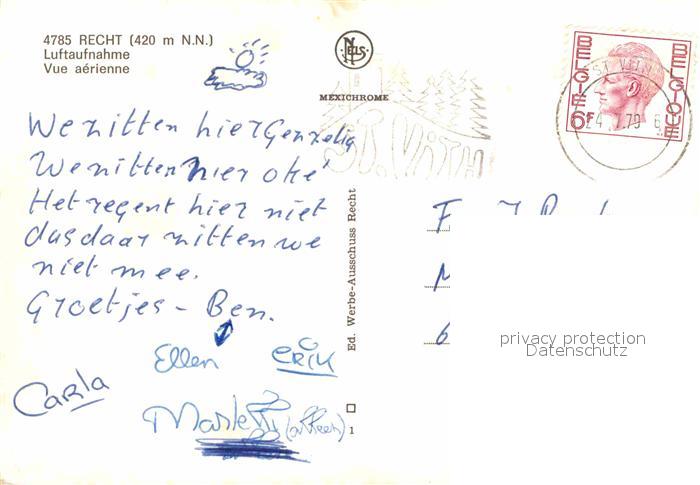 4785 RECHT (420 m N.N.)
Luftaufnahme
Vue aérienne
NELS
MEXICHROME
ST. VITH
BELGIE 6F BELGIQUE
ST. VITH
24 79 6
We zitten hier Genzelig
We zitten hier oké
Het regent hier niet
dus daar zitten we
niet mee.
Groetjes - Ben.
Ellen ERIK
Carla
1
Ed. Werbe-Ausschuss Recht
privacy protection
Datenschutz